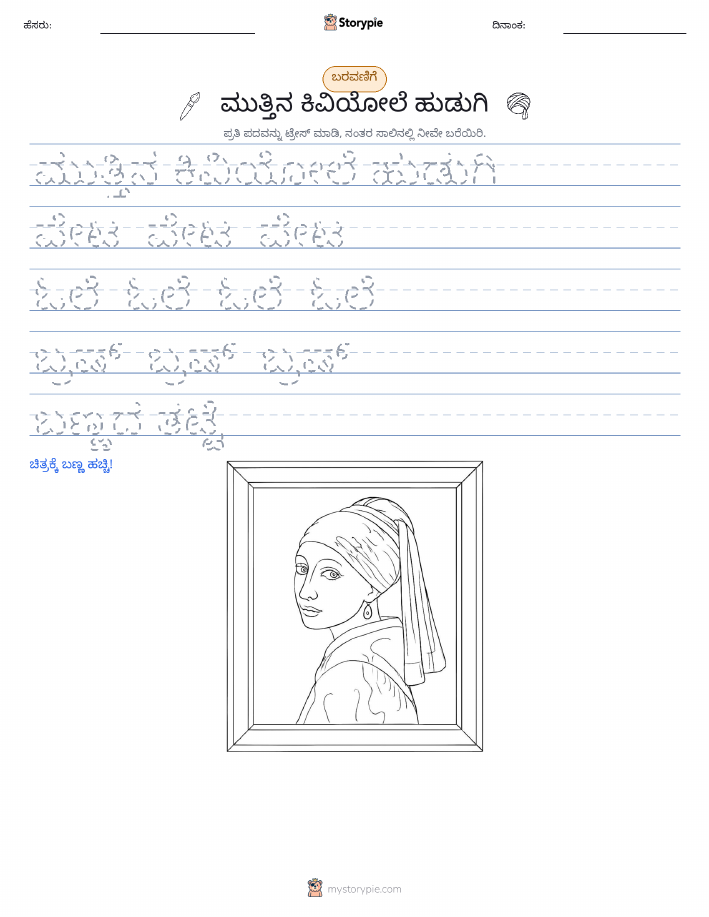 ಹೆಸರು:
Storypie
ದಿನಾಂಕ:
ಬರವಣಿಗೆ
ಮುತ್ತಿನ ಕಿವಿಯೋಲೆ ಹುಡುಗಿ
ಪ್ರತಿ ಪದವನ್ನು ಟ್ರೇಸ್ ಮಾಡಿ, ನಂತರ ಸಾಲಿನಲ್ಲಿ ನೀವೇ ಬರೆಯಿರಿ.
ಮುತ್ತಿನ ಕಿವಿಯೋಲೆ ಹುಡುಗಿ
ಪೇಟ ಪೇಟ ಪೇಟ
ಓಲೆ ಓಲೆ ಓಲೆ ಓಲೆ
ಬ್ರಷ್ ಬ್ರಷ್ ಬ್ರಷ್
ಬಣ್ಣದ ತಟ್ಟೆ
ಚಿತ್ರಕ್ಕೆ ಬಣ್ಣ ಹಚ್ಚಿ!
mystorypie.com